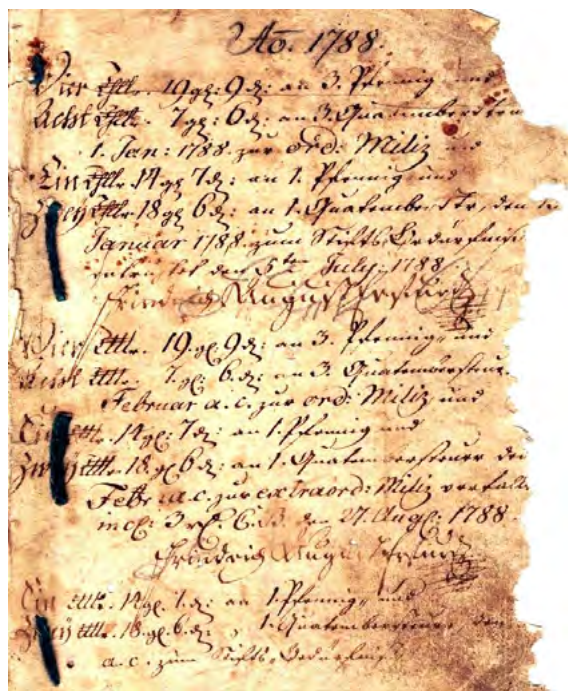 Ao. 1788.
Vier Thlr. 19 gl: 9 d: an 3. Pfennig und
Acht Thlr. 7 gl: 6 d: an 3. Quatember
1. Jan: 1788 zur ord: Miliz und
Ein Thlr. 14 gl 7 d: an 1. Pfennig und
Zwey Thlr. 18 gl 6 d: an 1. Quatember den
Januar 1788. zum Stifts Bedürfniß
den 5ten July. 1788.
Friedrich August
Vier Thlr. 19. gl. 9 d: an 3. Pfennig und
Acht Thlr. 7. gl: 6. d: an 3. Quatembersteuer
Februar a. c. zur ord: Miliz und
Ein Thlr. 14 gl: 7 d: an 1. Pfennig und
Zwey Thlr. 18. gl 6 d: an 1. Quatembersteuer den
Febr: a. c. zur extraord: Miliz
incl: 3 gl 6 d. den 27. Aug: 1788.
Friedrich August
Ein Thlr. 14 gl. 7. d: an 1. Pfennig und
Zwey Thlr. 18. gl. 6. d: 1. Quatembersteuer
a. c. zum Stifts Bedürfniß